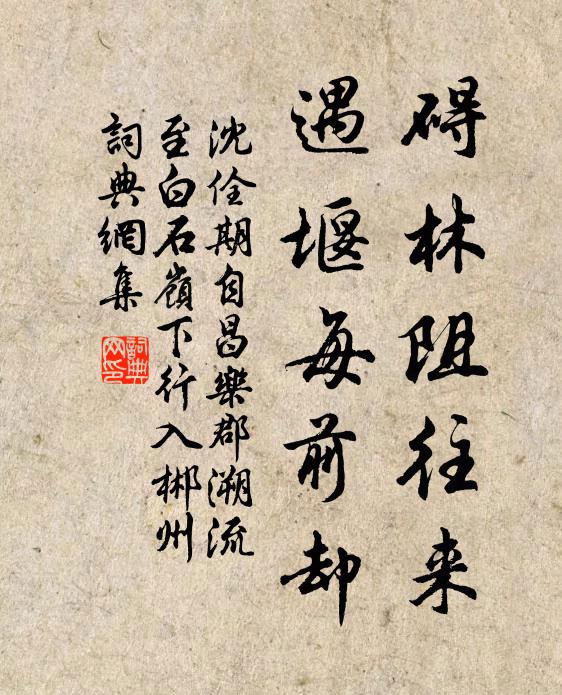 碍林阻往来
遇堰每前却
沈佺期自昌樂郡溯流
至白石嶺下行入郴州
詞典網集
詞典
网印